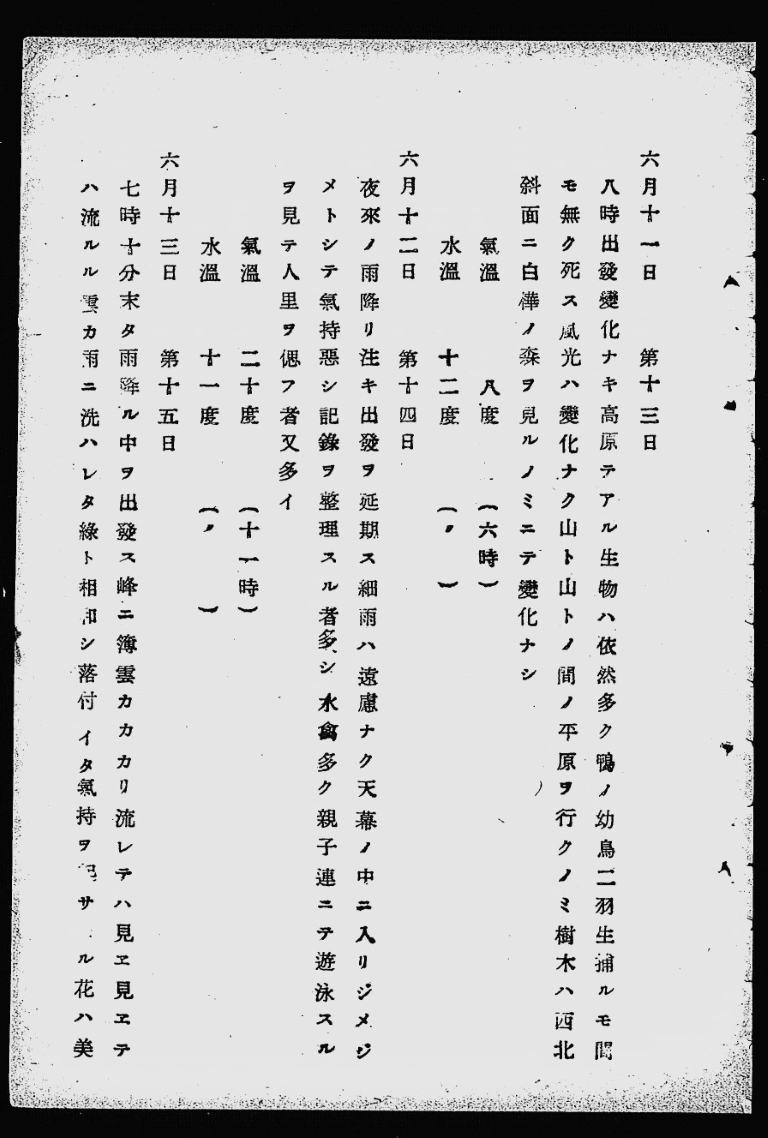 六月十一日　第十三日
八時出發變化ナキ高原テアル生物ハ依然多ク鴨ノ幼鳥二羽生捕ルモ間
モ無ク死ス風光ハ變化ナク山ト山トノ間ノ平原ヲ行クノミ樹木ハ西北
斜面ニ白樺ノ森ヲ見ルノミニテ變化ナシ
氣溫　八度　（六時）
水溫　十二度　（〃　）
六月十二日　第十四日
夜來ノ雨降リ注キ出發ヲ延期ス細雨ハ遠慮ナク天幕ノ中ニ入リジメジ
メトシテ氣持惡シ記錄ヲ整理スル者多シ水禽多ク親子連ニテ遊泳スル
ヲ見テ人里ヲ偲フ者又多イ
氣溫　二十度　（十一時）
水溫　十一度　（〃　）
六月十三日　第十五日
七時十分末タ雨降ル中ヲ出發ス峰ニ簿雲カカカリ流レテハ見ヱ見ヱテ
ハ流ルル雲カ雨ニ洗ハレタ綠ト相和シ落付イタ氣持ヲサル花ハ美